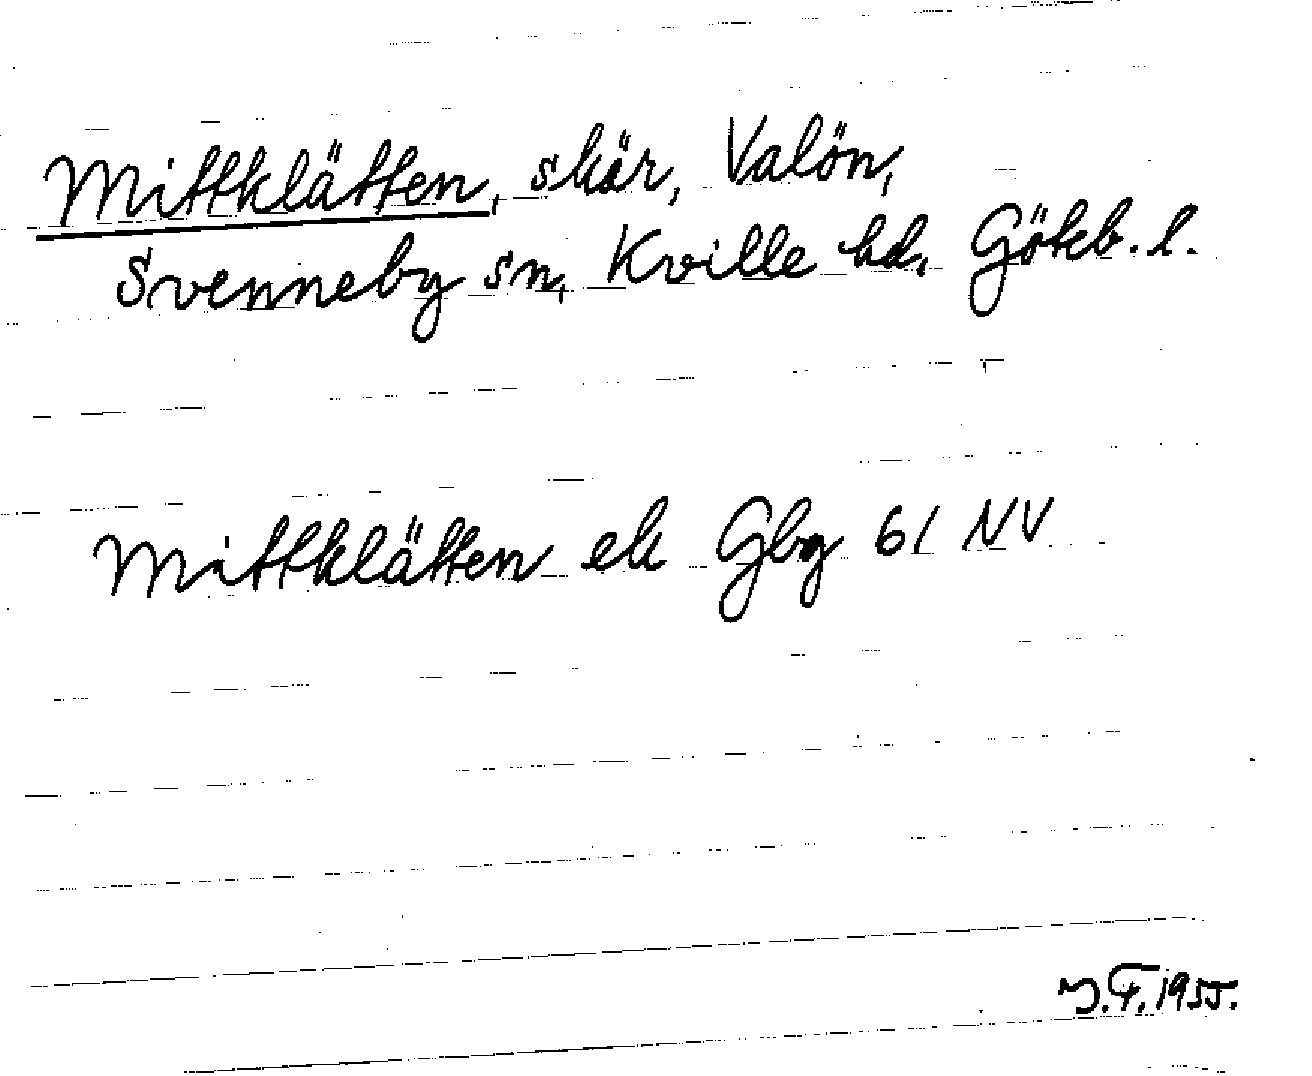 Mittklätten, skär, Valön,
Svenneby sn, Kville hd, Gökb. l.
Mittklätten ek Gbg 61 NV
J.F. 1955.